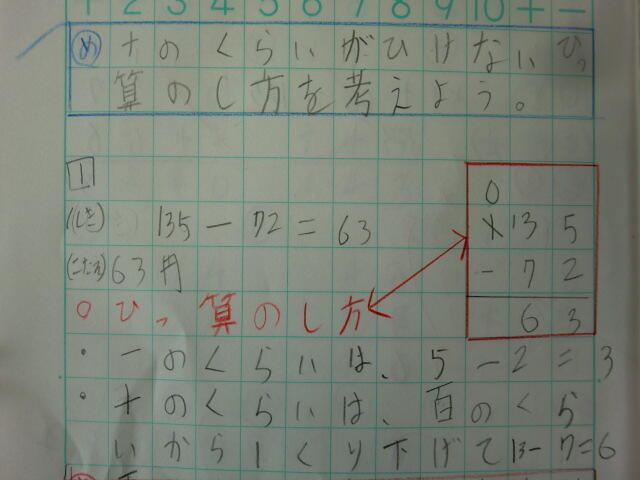 1 2 3 4 5 6 7 8 9 10 十 一
め 十のくらいがひけないひっ
算のし方を考えよう。
1
(しき) 135-72=63
(こたえ) 63円
0
1 13 5
- 7 2
6 3
○ひっ算のし方
・一のくらいは、5-2=3
・十のくらいは、百のくら
いから1くり下げて13-7=6